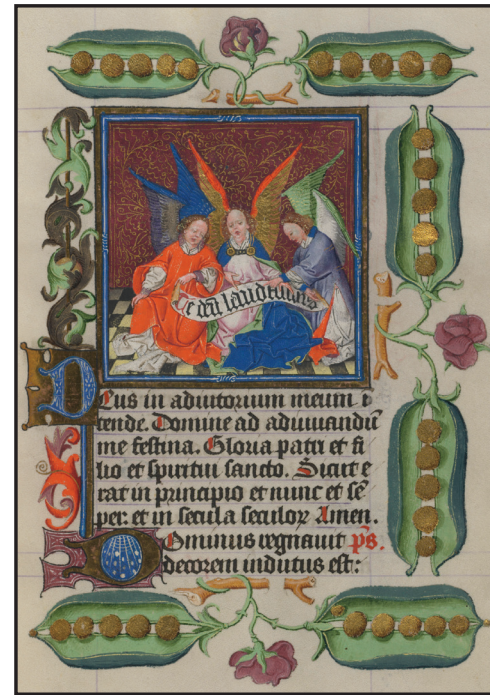 Te deū laudamus
Deus in adiutorium meum i
tende. Domine ad adiuuandū
me festina. Gloria patri et fi
lio et spiritui sancto. Sicut e
rat in principio et nunc et sē
per: et in secula seculoꝝ Amen.
Dominus regnauit ps.
decorem indutus est: